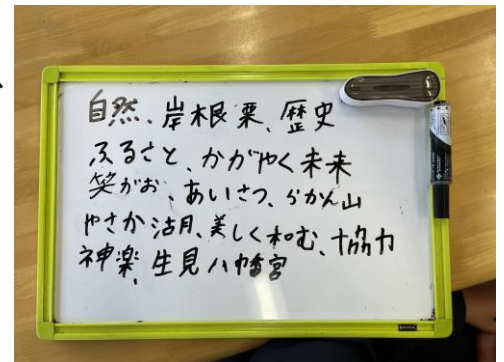 自然、岸根栗、歴史
ふるさと、かがやく未来
笑がお、あいさつ、らかん山
やさか湖、美しく和む、協力
神楽、生見八幡宮